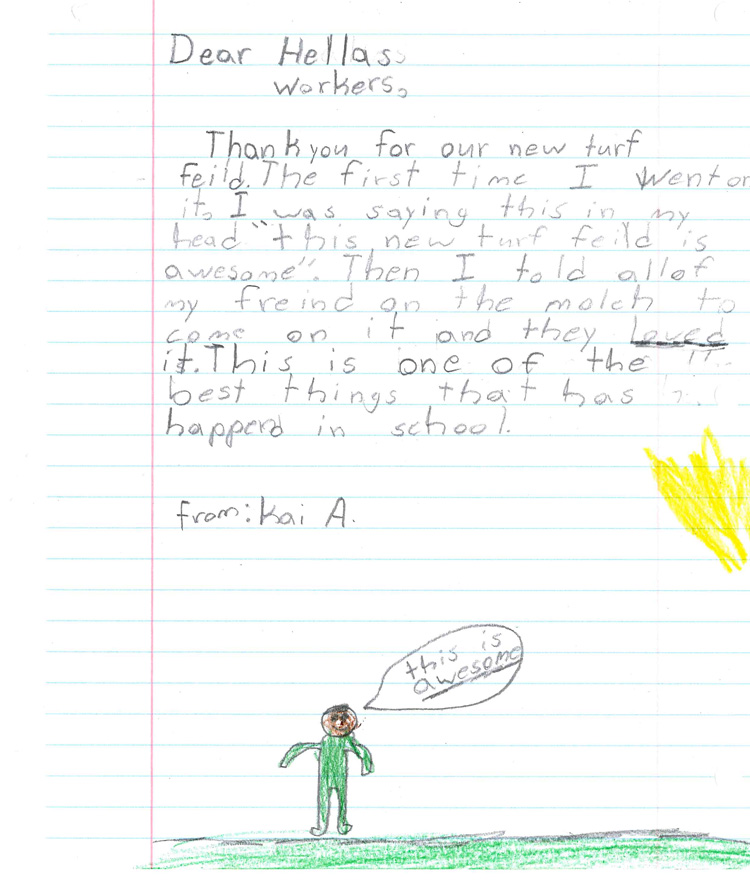 Dear Hellas,
workers,
Thank you for our new turf
feild. The first time I went on
it, I was saying this in my
head "this new turf feild is
awesome". Then I told all of
my freind on the molch to
come on it and they loved
it. This is one of the
best things that has
happend in school.
from: Kai A.
this is
awesome